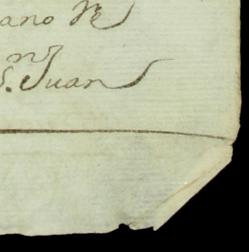 ano R
n
S. Juan